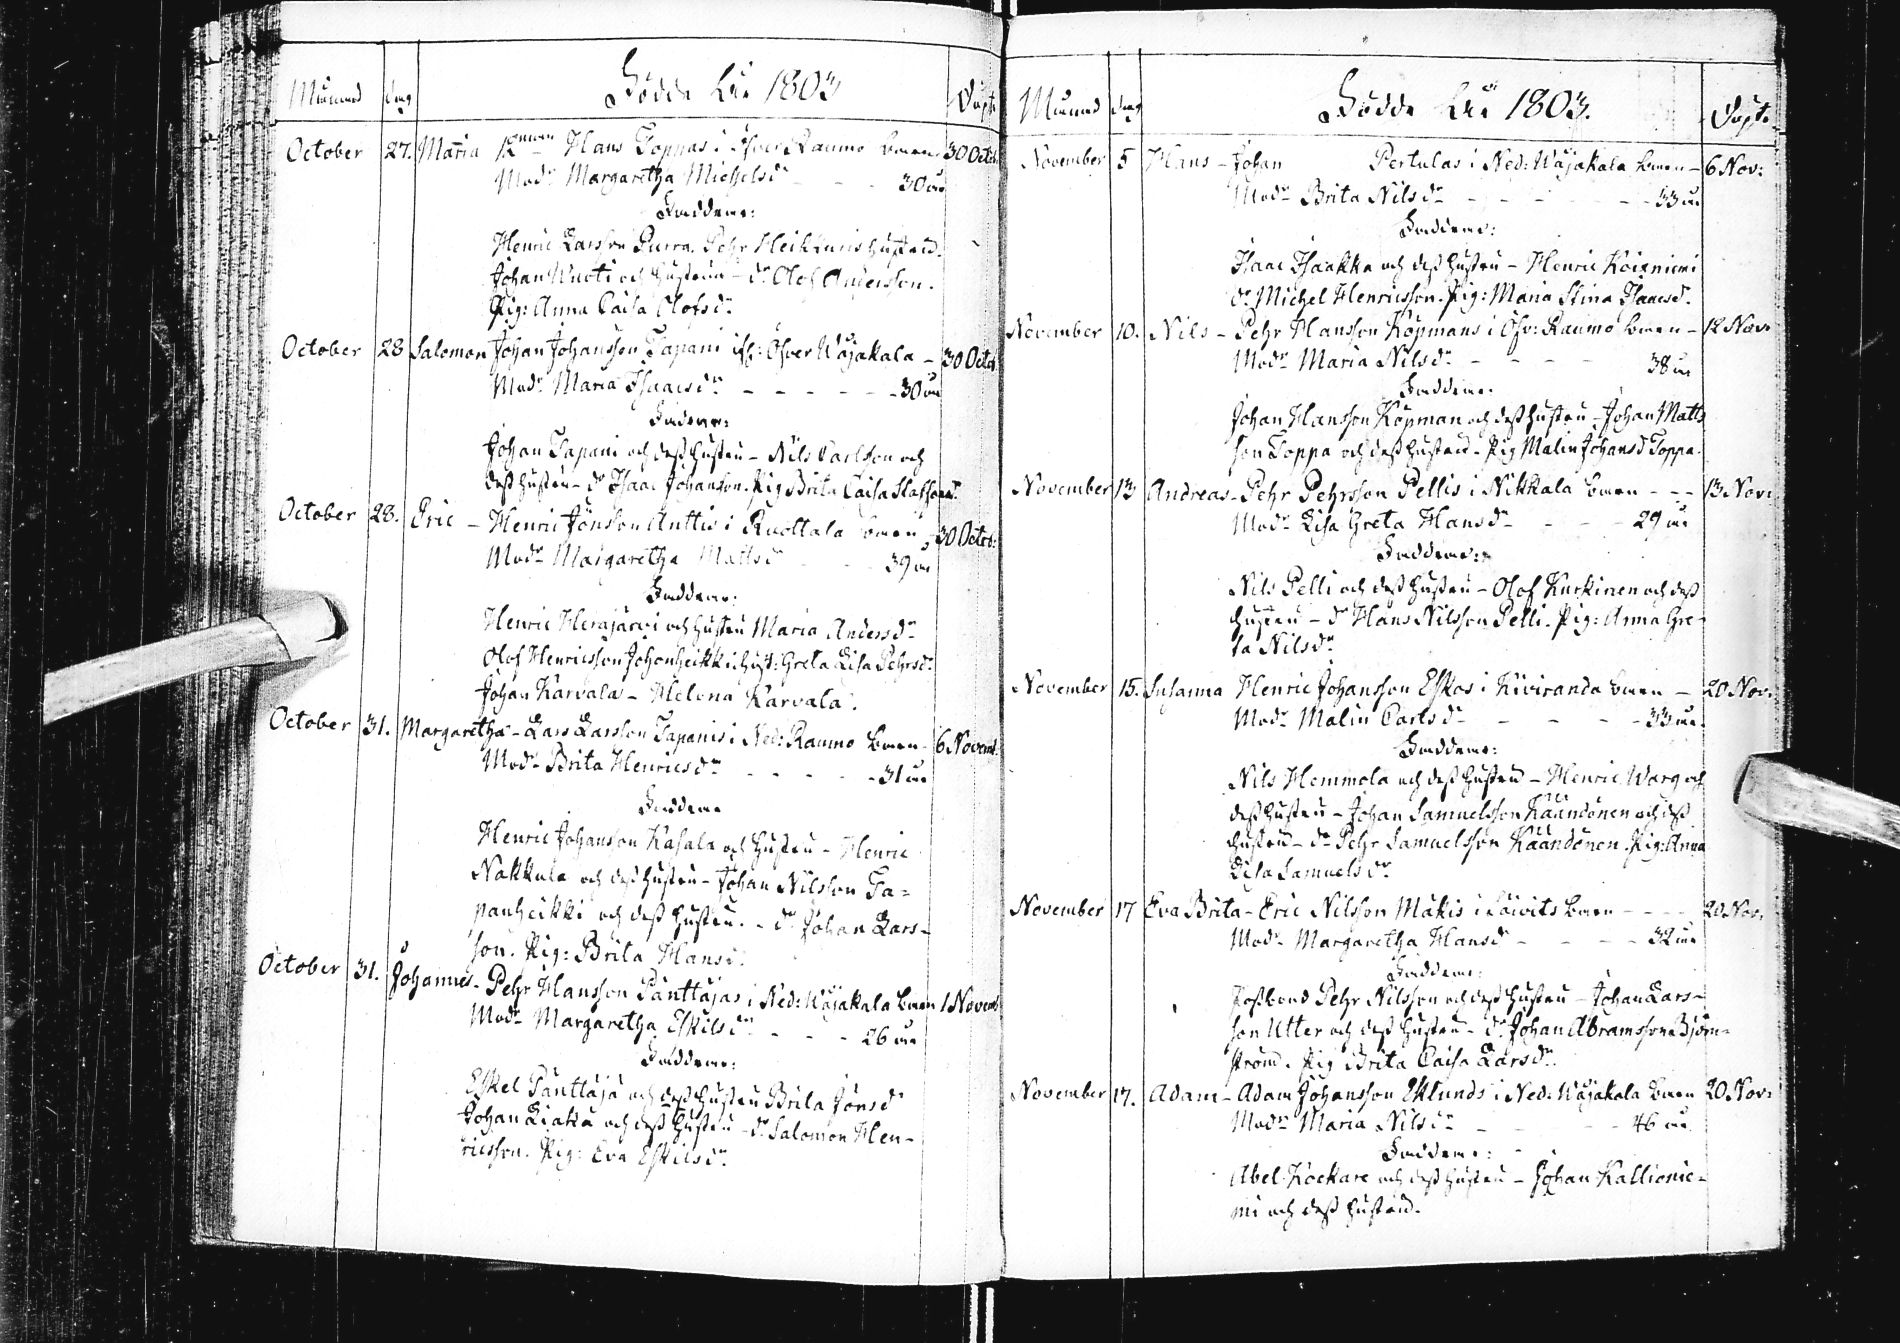 Månad dag Födde År 1803 Döpt.
October 27. Maria Hans Toppas i Öfver Raumo barn 30 Octob:
Modr Margaretha Michelsdr - - - 30 år
Faddrar:
Henric Larsson Purra. Pehr Heikkuris hustru.
Johan Wuoti och hustrun - dr. Olof Andersson.
Pig: Anna Caisa Olofsdr.
October 28 Salomon Johan Johansson Tapani Öfver Wojakala - 30 Octob
Modr Maria Isaacsdr - - - - - - 30 år
Faddrar:
Johan Tapani och dess hustru - Nils Carlson och
dess hustru - dr Isaac Johanson. Pig Brita Caisa Staffansdr.
October 28. Eric - Henric Jönsson Anttis i Ruottala barn - 30 Octob:
Modr Margaretha Mattsdr - - - 39 år
Faddrar:
Henric Herajärvi och hustru Maria Andersdr
Olof Henricsson Johonheikki hust: Greta Lisa Pehrsdr.
Johan Karvala - Helena Karvala.
October 31. Margaretha - Lars Larsson Tapanis i Ned: Raumo barn - 6 Novemb.
Modr Brita Henricsdr - - - - 31 år
Faddrar
Henric Johanson Kasala och hustru - Henric
Nakkula och dess hustru - Johan Nilsson Ta=
panheikki och dess hustru. - dr Johan Lars-
son. Pig: Brita Hansdr.
October 31. Johannes - Pehr Hansson Panttajas i Ned: Wojakala barn 1 Novemb
Modr Margaretha Eskilsdr - - - 26 år
Faddrar:
Eskel Panttaja och dess hustru Brita Jönsdr
Johan Liaka och dess hustru - dr Salomon Hen-
ricsson. Pig: Eva Eskilsdr.
Månad dag Födde År 1803. Döpt.
November 5 Hans - Johan Pertulas i Ned: Wojakala barn - 6 Nov:
Modr Brita Nilsdr - - - - - - 33 år
Faddrar:
Isaac Isaakka och dess hustru - Henric Koiuniemi
dr Michel Henricsson. Pig: Maria Stina Isaacsdr.
November 10. Nils - Pehr Hansson Köpmans i Öfv: Raumo barn - 12 Nov:
Modr Maria Nilsdr - - - - 38 år
Faddrar:
Johan Hansson Köpman och dess hustru - Johan Matts
son Toppa och dess hustru. Pig Malin Johansdr Toppa.
November 13 Andreas - Pehr Pehrsson Pellis i Nikkala barn - - - 13 Nov:
Modr Lisa Greta Hansdr - - - - 29 år
Faddrar:
Nils Pelli och dess hustru - Olof Kurkinen och dess
hustru - dr Hans Nilsson Pelli. Pig: Anna Gre-
ta Nilsdr
November 15. Susanna Henric Johansson Eskos i Kiviranda barn - 20 Nov:
Modr Malin Carlsdr - - - - - 33 år.
Faddrar:
Nils Hemmola och dess hustru - Henric Warg och
dess hustru - Johan Samuelsson Käändönen och dess
hustru - dr Pehr Samuelsson Käändönen. Pig: Anna
Lisa Samuelsdr
November 17 Eva Brita - Eric Nilsson Mäkis i Säivits barn - - - 20 Nov:
Modr Margaretha Hansdr - - - - 32 år
Faddrar:
Postbond Pehr Nilsson och dess hustru - Johan Lars-
son Utter och dess hustru - dr Johan Abramsson Björn-
ström. Pig Brita Caisa Larsdr.
November 17. Adam - Adam Johansson Eklunds i Ned: Wojakala barn 20 Nov:
Modr Maria Nilsdr - - - - 46 år
Faddrar:
Abel Kockare och dess hustru - Johan Kallionie-
mi och dess hustru.